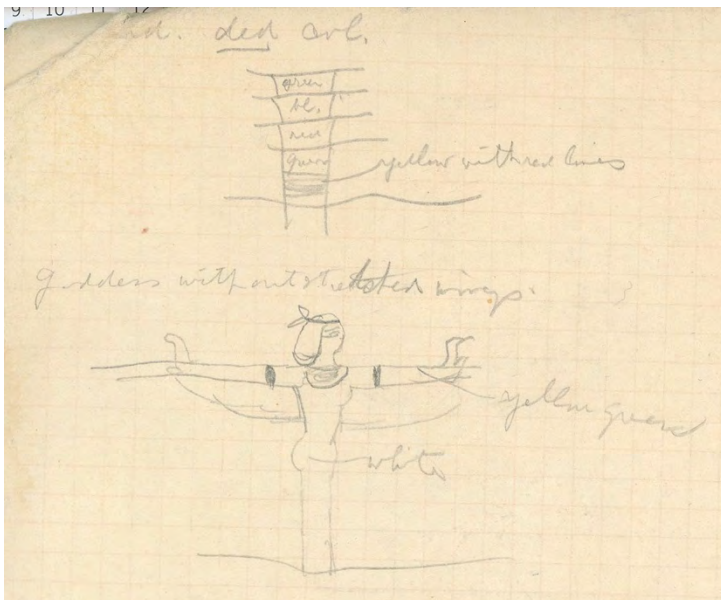 9 10 11 12
ded col.
green
bl.
red
green
yellow with red lines
goddess with outstretched wings.
yellow green
white